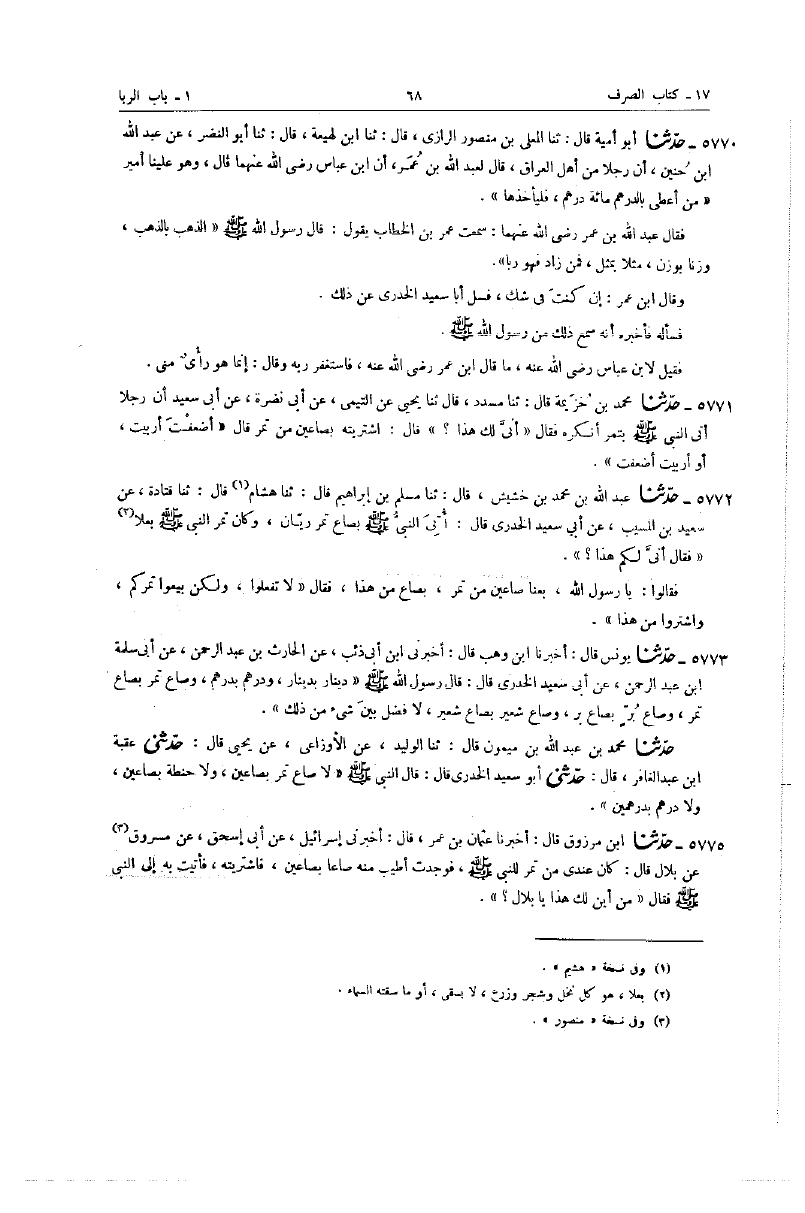 ١٧ - كتاب الصرف ٦٨ ١ - باب الربا
٥٧٧٠ - حدّثنا أبو أمية قال : ثنا المعلى بن منصور الرازى ، قال : ثنا ابن لهيعة ، قال : ثنا أبو النضر ، عن عبد الله
ابن حُنين ، أن رجلا من أهل العراق ، قال لعبد الله بن عُمَر، أن ابن عباس رضى الله عنهما قال ، وهو علينا أمير
« من أعطى بالدرهم مائة درهم ، فليأخذها » .
فقال عبد الله بن عمر رضى الله عنهما : سمعت عمر بن الخطاب يقول : قال رسول الله ﷺ « الذهب بالذهب ،
وزنا بوزن ، مثلا بمثل ، فمن زاد فهو ربا».
وقال ابن عمر : إن كنتَ فى شك ، فسل أبا سعيد الخدرى عن ذلك .
فسأله فأخبره أنه سمع ذلك من رسول الله ﷺ .
فقيل لابن عباس رضى الله عنه ، ما قال ابن عمر رضى الله عنه ، فاستغفر ربه وقال : إنما هو رأىٌ منى .
٥٧٧١ - حدّثنا محمد بن خزيمة قال : ثنا مسدد ، قال ثنا يحيى عن التيمى ، عن أبى نضرة ، عن أبى سعيد أن رجلا
أتى النبى ﷺ بتمر أنكره فقال « أنىَّ لك هذا ؟ » قال : اشتريته بصاعين من تمر قال « أضعفْتَ أربيت ،
أو أربيت أضعفت » .
٥٧٧٢ - حدّثنا عبد الله بن محمد بن خشيش ، قال : ثنا مسلم بن إبراهيم قال : ثنا هشام(١) قال : ثنا قتادة ، عن
سعيد بن المسيب ، عن أبي سعيد الخدرى قال : أُتِىَ النبىُّ ﷺ بصاع تمر ريّان ، وكان تمر النبى ﷺ بعلا(٢)
« فقال أنىَّ لكم هذا ؟ » .
فقالوا : يا رسول الله ، بعنا صاعين من تمر ، بصاع من هذا ، فقال « لا تفعلوا ، ولكن بيعوا تمركم ،
واشتروا من هذا » .
٥٧٧٣ - حدّثنا يونس قال : أخبرنا ابن وهب قال : أخبرنى ابن أبى ذئب ، عن الحارث بن عبد الرحمن ، عن أبى سلمة
ابن عبد الرحمن ، عن أبي سعيد الخدرى قال : قال رسول الله ﷺ « دينار بدينار ، ودرهم بدرهم ، وصاع تمر بصاع
تمر ، وصاع بُرّ بصاع بر ، وصاع شعير بصاع شعير ، لا فضل بينَ شىء من ذلك » .
حدّثنا محمد بن عبد الله بن ميمون قال : ثنا الوليد ، عن الأوزاعى ، عن يحيى قال : حدّثنى عقبة
ابن عبدالغافر ، قال : حدّثنى أبو سعيد الخدرى قال : قال النبى ﷺ « لا صاع تمر بصاعين ، ولا حنطة بصاعين ،
ولا درهم بدرهمين » .
٥٧٧٥ - حدّثنا ابن مرزوق قال : أخبرنا عثمان بن عمر ، قال : أخبرنى إسرائيل ، عن أبى إسحق ، عن مسروق(٣)
عن بلال قال : كان عندى من تمر للنبى ﷺ ، فوجدت أطيب منه صاعا بصاعين ، فاشتريته ، فأتيت به إلى النبى
ﷺ فقال « من أين لك هذا يا بلال ؟ » .
(١) وفى نسخة « هشيم » .
(٢) بعلا ، هو كل نخل وشجر وزرع ، لا يسقى ، أو ما سقته السماء .
(٣) وفى نسخة « منصور » .